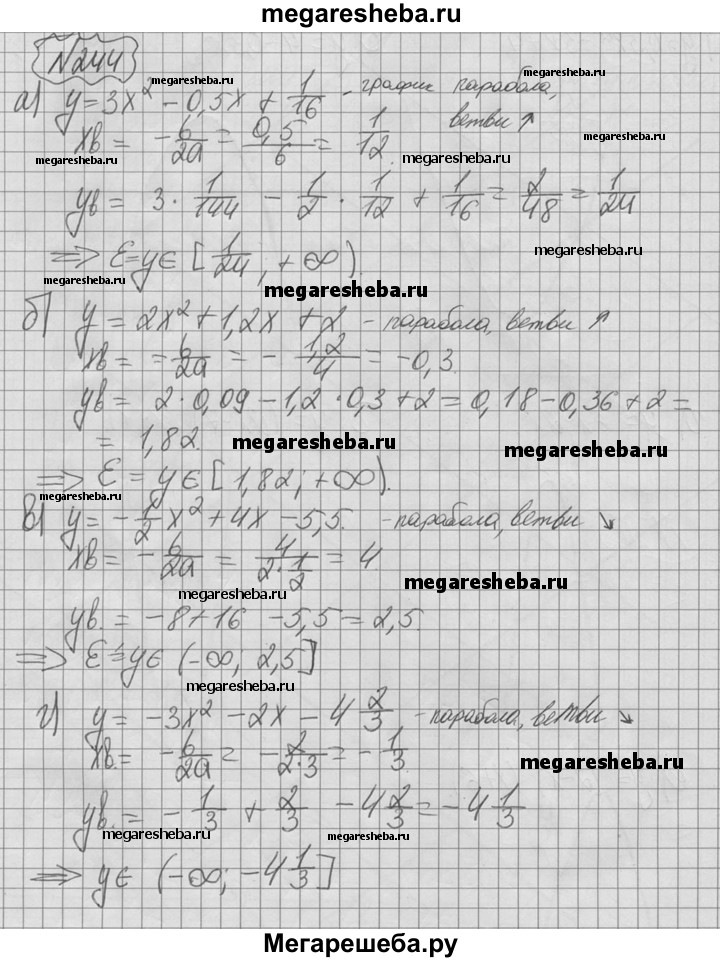 megaresheba.ru
N244
megaresheba.ru
megaresheba.ru
а) y = 3x² - 0,5x + 1/16 - график парабола,
ветви ↑
megaresheba.ru
xв = -b/2a = 0,5/6 = 1/12.
megaresheba.ru
megaresheba.ru
yв = 3 · 1/144 - 1/2 · 1/12 + 1/16 = 2/48 = 1/24
megaresheba.ru
megaresheba.ru
=> E = y ∈ [1/24; +∞).
megaresheba.ru
megaresheba.ru
б) y = 2x² + 1,2x + 2 - парабола, ветви ↑
xв = -b/2a = - 1,2/4 = -0,3.
yв = 2·0,09 - 1,2·0,3 + 2 = 0,18 - 0,36 + 2 =
= 1,82.
megaresheba.ru
megaresheba.ru
=> E = y ∈ [1,82; +∞).
megaresheba.ru
megaresheba.ru
в) y = -1/2x² + 4x - 5,5. - парабола, ветви ↘
xв = -b/2a = 4/2·1/2 = 4
megaresheba.ru
megaresheba.ru
yв. = -8 + 16 - 5,5 = 2,5.
=> E = y ∈ (-∞; 2,5]
megaresheba.ru
г) y = -3x² - 2x - 4 2/3 - парабола, ветви ↘
xв. = -b/2a = -2/2·3 = -1/3.
megaresheba.ru
yв. = -1/3 + 2/3 - 4 2/3 = -4 1/3
megaresheba.ru
megaresheba.ru
=> y ∈ (-∞; -4 1/3]
Мегарешеба.ру